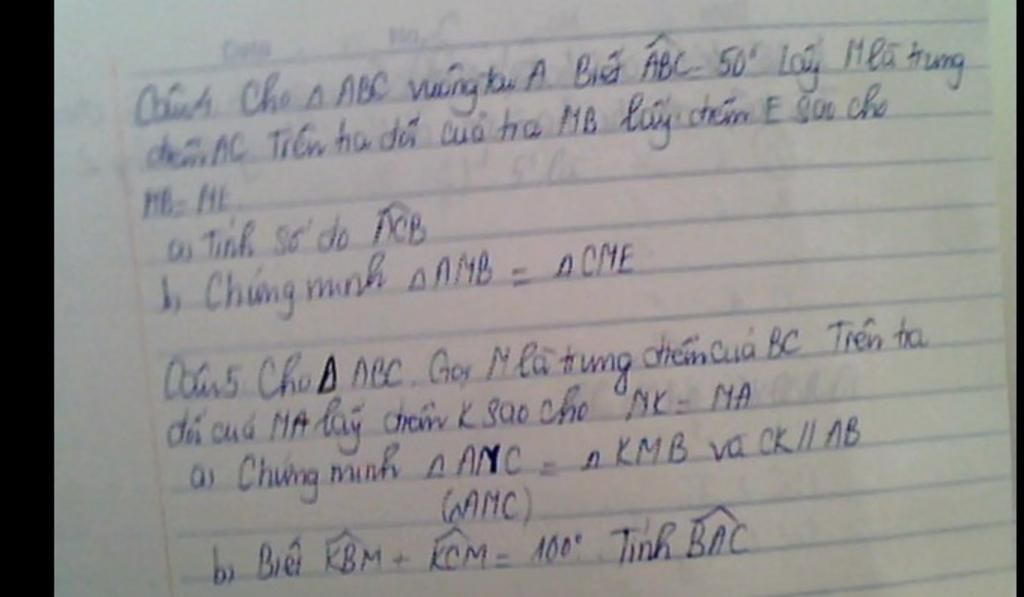 Câu 4. Cho Δ ABC vuông tại A. Biết ABC = 50° Lấy M là trung
điểm AC Trên tia đối của tia MB lấy điểm E sao cho
MB = ME
a) Tính số đo ACB
b, Chứng minh Δ AMB = Δ CME
Câu 5. Cho Δ ABC. Gọi M là trung điểm của BC Trên tia
đối của MA lấy điểm K sao cho MK = MA
a) Chứng minh Δ AMC = Δ KMB và CK // AB
(ΔAMC)
b) Biết KBM + KCM = 100° Tính BAC